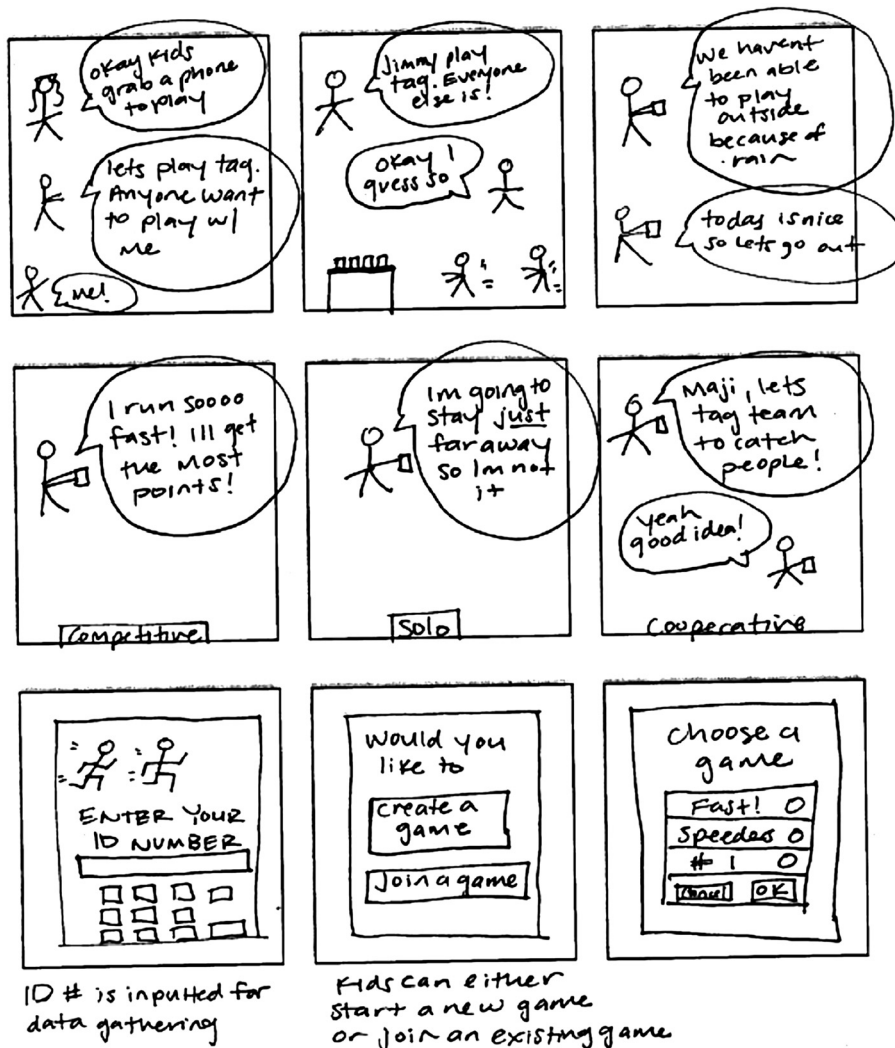 okay kids
grab a phone
to play
lets play tag.
Anyone want
to play w/
me
me!
Jimmy play
tag. Everyone
else is!
okay I
guess so
we havent
been able
to play
outside
because of
rain
today is nice
so lets go out
I run soooo
fast! Ill get
the most
points!
Competitive
Im going to
stay just
far away
so Im not
it
Solo
Maji, lets
tag team
to catch
people!
yeah
good idea!
Cooperative
ENTER YOUR
ID NUMBER
ID # is inputted for
data gathering
Would you
like to
create a
game
Join a game
Kids can either
start a new game
or join an existing game
choose a
game
Fast!
Speeders
# 1
Cancel OK